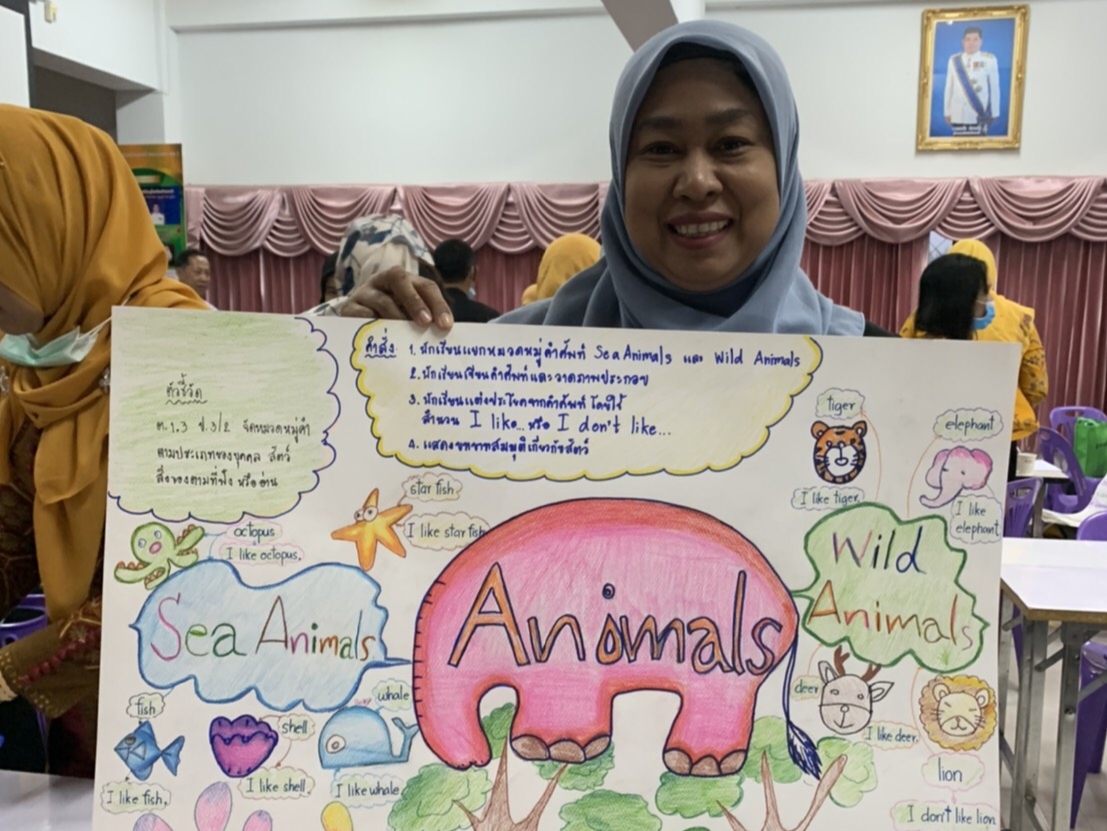 ตัวชี้วัด
ต.1.3 ป.3/2 จัดหมวดหมู่คำ
ตามประเภทของบุคคล สัตว์
สิ่งของตามที่ฟัง หรืออ่าน
คำสั่ง 1. นักเรียนแยกหมวดหมู่คำศัพท์ Sea Animals และ Wild Animals
2. นักเรียนเขียนคำศัพท์และวาดภาพประกอบ
3. นักเรียนแต่งประโยคจากคำศัพท์ โดยใช้
สำนวน I like... หรือ I don't like...
4. แสดงบทบาทสมมุติเกี่ยวกับสัตว์
octopus
I like octopus.
star fish
I like star fish
Sea Animals
fish
I like fish.
shell
I like shell.
whale
I like whale
Animals
tiger
I like tiger
elephant
I like
elephant
Wild
Animals
deer
I like deer.
lion
I don't like lion